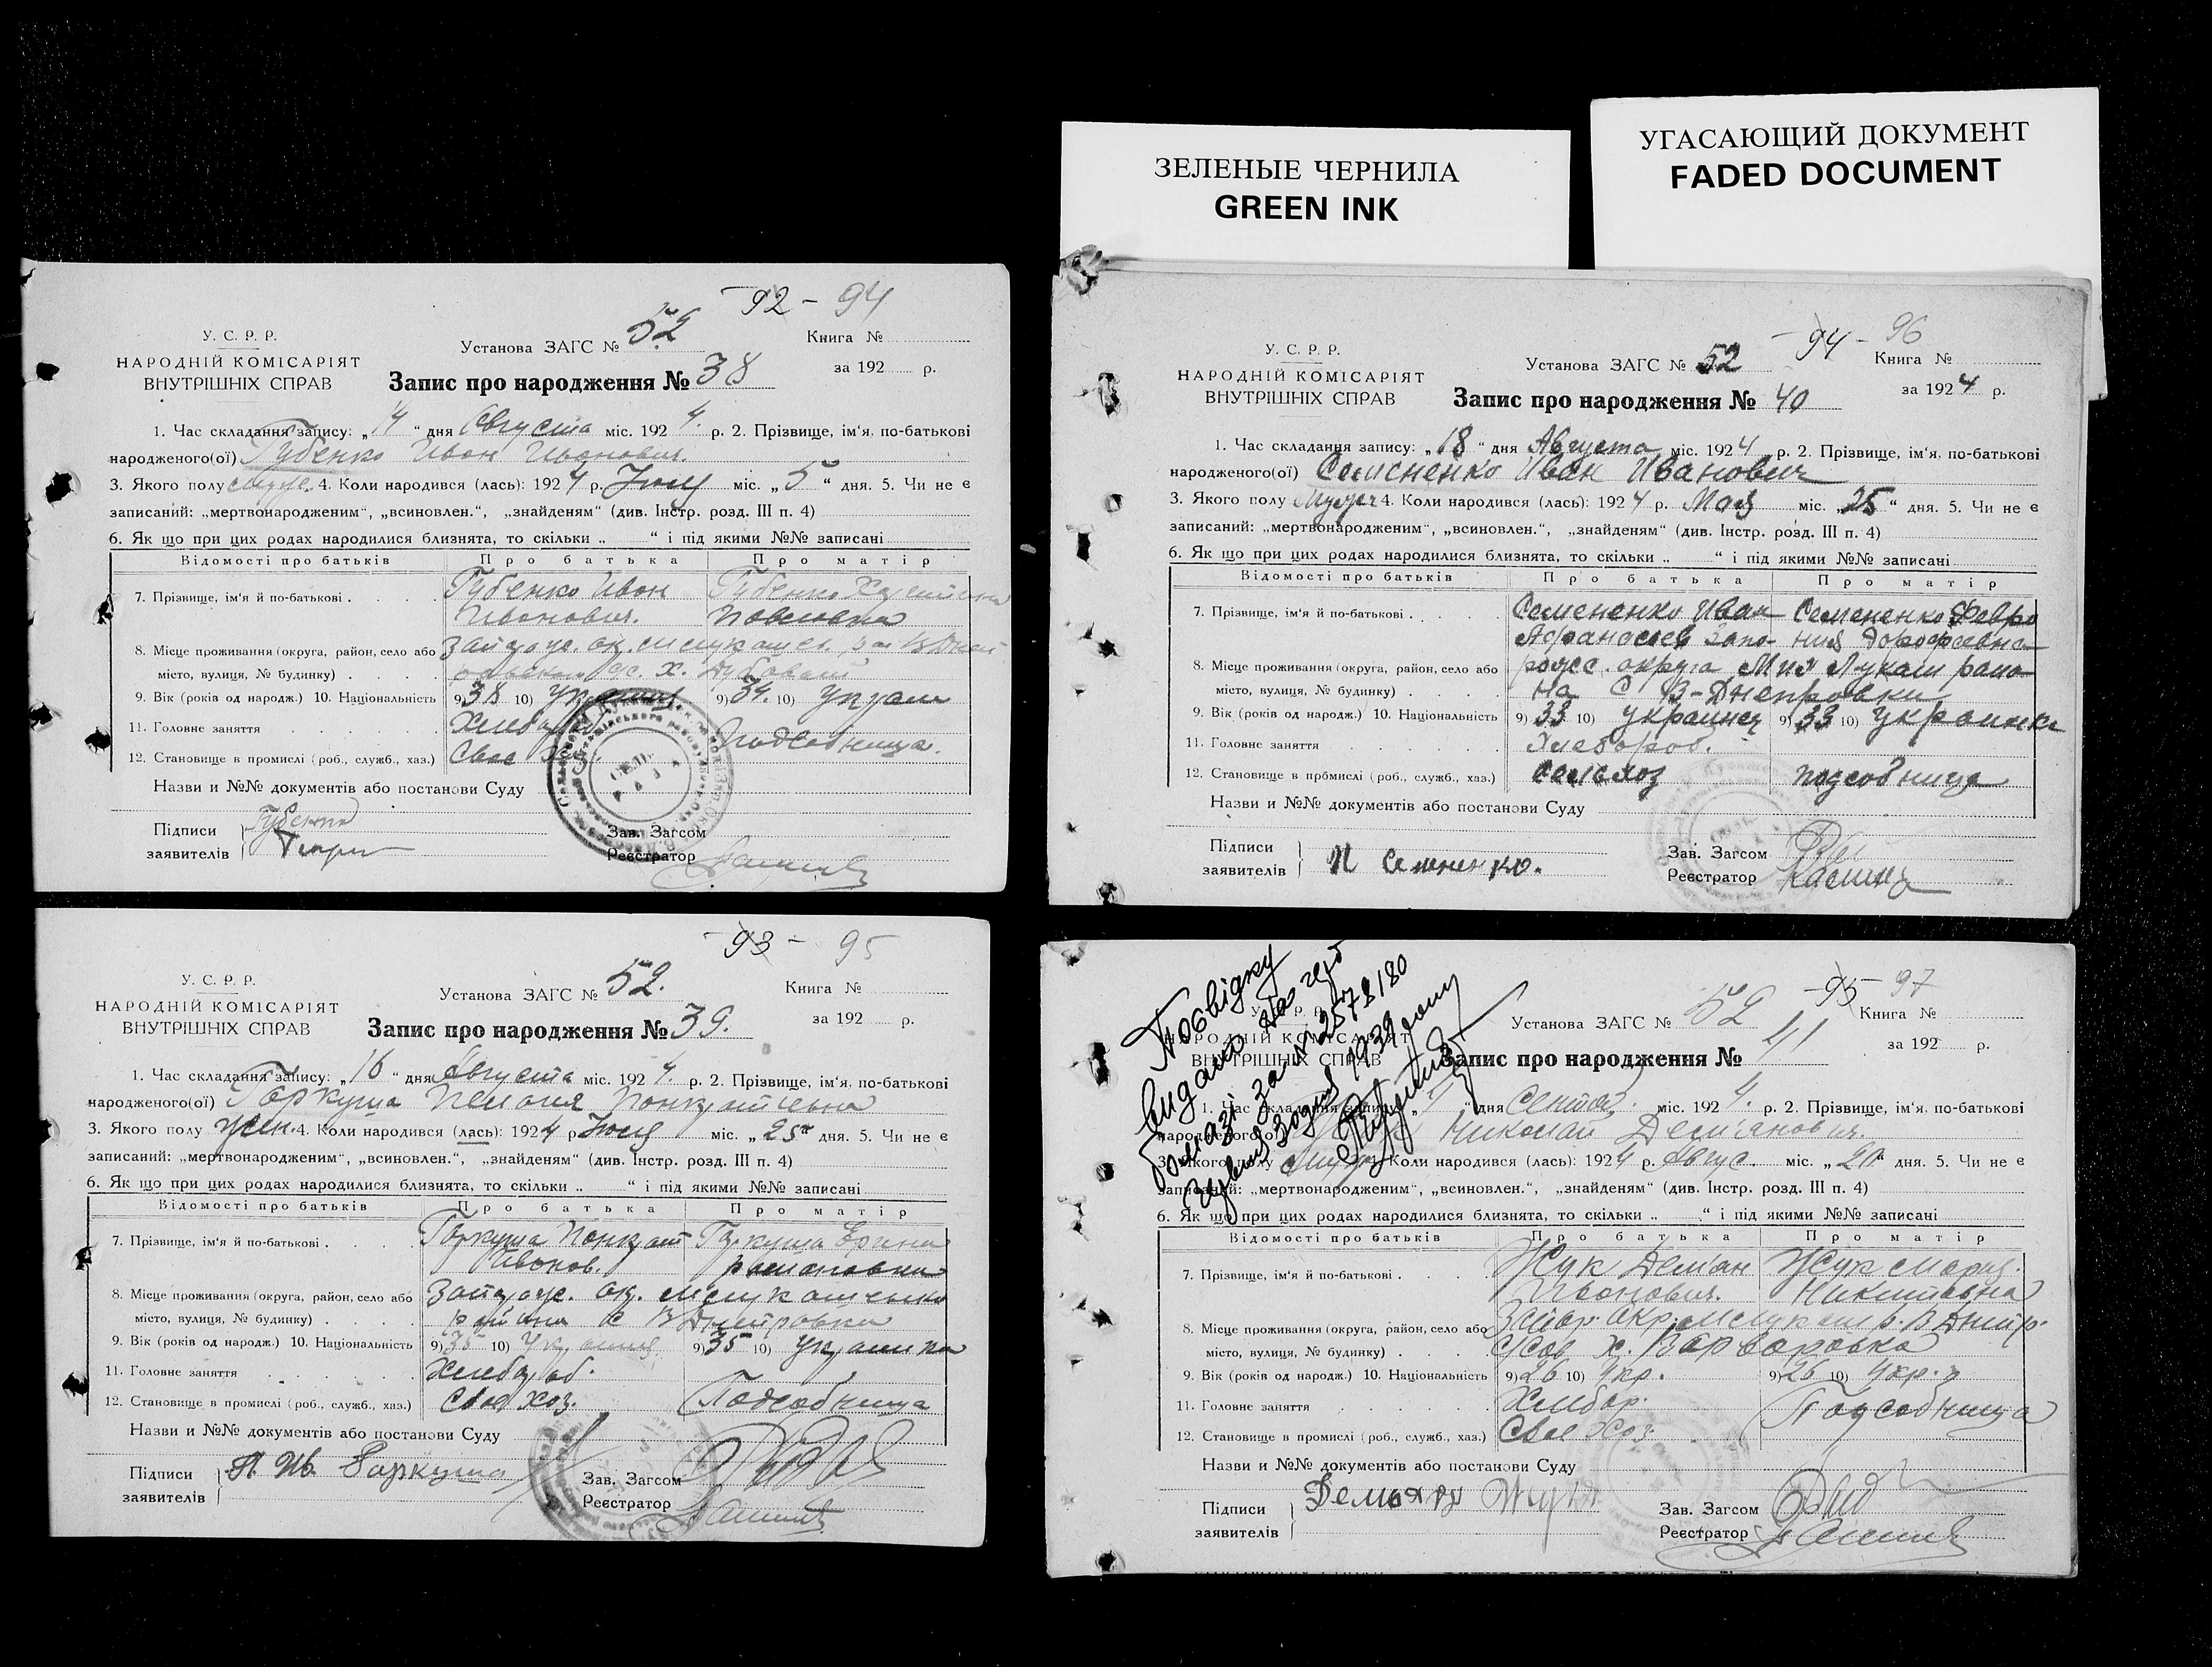 ЗЕЛЕНЫЕ ЧЕРНИЛА
GREEN INK
УГАСАЮЩИЙ ДОКУМЕНТ
FADED DOCUMENT
92 - 94
У. С. Р. Р.
НАРОДНІЙ КОМІСАРІЯТ
ВНУТРІШНІХ СПРАВ
Установа ЗАГС № 52
Книга №
Запис про народження № 38
за 192 р.
1. Час складання запису: „14 “ дня Августа міс. 1924. р. 2. Прізвище, ім‘я, по-батькові
народженого(ої) Губенко Иван Иванович.
3. Якого полу муж. 4. Коли народився (лась): 1924 р. Июля міс. „ 5 “ дня. 5. Чи не є
записаний: „мертвонародженим“, „всиновлен.“, „знайденям“ (див. Інстр. розд. III п. 4)
6. Як що при цих родах народилися близнята, то скільки „ “ і під якими №№ записані
Відомості про батьків Про батька Про матір
7. Прізвище, ім‘я й по-батькові . Губенко Иван Губенко
Иванович. Павловна
8. Місце проживання (округа, район, село або
місто, вулиця, № будинку) . х. Дубовый
9. Вік (років од народж.) 10. Національність 9) 38 10) 9) 34. 10)
11. Головне заняття Хлебороб
12. Становище в промислі (роб., служб., хаз.) Свое Хоз. Подсобница.
Назви и №№ документів або постанови Суду
Підписи
заявителів
Губенко
Зав. Загсом
Реєстратор
93 - 95
У. С. Р. Р.
НАРОДНІЙ КОМІСАРІЯТ
ВНУТРІШНІХ СПРАВ
Установа ЗАГС № 52.
Книга №
Запис про народження № 39.
за 192 р.
1. Час складання запису: „16 “ дня Августа міс. 1924. р. 2. Прізвище, ім‘я, по-батькові
народженого(ої) Гаркуша Пелагия Панкратьевна
3. Якого полу жен. 4. Коли народився (лась): 1924 р Июля міс. „ 25 “ дня. 5. Чи не є
записаний: „мертвонародженим“, „всиновлен.“, „знайденям“ (див. Інстр. розд. III п. 4)
6. Як що при цих родах народилися близнята, то скільки „ “ і під якими №№ записані
Відомості про батьків Про батька Про матір
7. Прізвище, ім‘я й по-батькові . Гаркуша Панкрат Гаркуша
Иванов. Романовна
8. Місце проживання (округа, район, село або Запорож. ок.
місто, вулиця, № будинку) . района с В Днепровка
9. Вік (років од народж.) 10. Національність 9) 35 10) 9) 35 10) украинка
11. Головне заняття Хлебороб.
12. Становище в промислі (роб., служб., хаз.) Свое хоз. Подсобница
Назви и №№ документів або постанови Суду
Підписи
заявителів
П. Ив. Гаркуша
Зав. Загсом
Реєстратор
94 - 96
У. С. Р. Р.
НАРОДНІЙ КОМІСАРІЯТ
ВНУТРІШНІХ СПРАВ
Установа ЗАГС № 52
Книга №
Запис про народження № 40
за 1924 р.
1. Час складання запису: „18 “ дня Августа міс. 1924 р. 2. Прізвище, ім‘я, по-батькові
народженого(ої) Семененко Иван Иванович
3. Якого полу Мужч 4. Коли народився (лась): 1924 р. Мая міс. „25 “ дня. 5. Чи не є
записаний: „мертвонародженим“, „всиновлен.“, „знайденям“ (див. Інстр. розд. III п. 4)
6. Як що при цих родах народилися близнята, то скільки „ “ і під якими №№ записані
Відомості про батьків Про батька Про матір
7. Прізвище, ім‘я й по-батькові . Семененко Иван Семененко Февро
Афанасиев Запо- ния Дорофевна
8. Місце проживання (округа, район, село або рожс. округа М Лукаш райо
місто, вулиця, № будинку) . на С В-Днепровки
9. Вік (років од народж.) 10. Національність 9) 33 10) украинец 9) 33 10) украинка
11. Головне заняття Хлебороб.
12. Становище в промислі (роб., служб., хаз.) подсобница
Назви и №№ документів або постанови Суду
Підписи
заявителів
И Семененко.
Зав. Загсом
Реєстратор
95 - 97
Посвідку
видано на
бомазі за № 2578180
1939 року
У. С. Р. Р.
НАРОДНІЙ КОМІСАРІЯТ
ВНУТРІШНІХ СПРАВ
Установа ЗАГС № 52
Книга №
Запис про народження № 41
за 192 р.
1. Час складання запису: „ “ дня Сентяб. міс. 1924. р. 2. Прізвище, ім‘я, по-батькові
народженого(ої) Николай Демьянович.
3. Якого полу Муж 4. Коли народився (лась): 1924 р. Авгус. міс. „ 20 “ дня. 5. Чи не є
записаний: „мертвонародженим“, „всиновлен.“, „знайденям“ (див. Інстр. розд. III п. 4)
6. Як що при цих родах народилися близнята, то скільки „ “ і під якими №№ записані
Відомості про батьків Про батька Про матір
7. Прізвище, ім‘я й по-батькові . Жук Демьян Жук Мария.
Иванович. Никитовна
8. Місце проживання (округа, район, село або Запор. окр. В Днепр.
місто, вулиця, № будинку) . х. Варваровка
9. Вік (років од народж.) 10. Національність 9) 26 10) Укр. 9) 26 10) Укр.
11. Головне заняття Хлебор.
12. Становище в промислі (роб., служб., хаз.) Свое Хоз. Подсобница
Назви и №№ документів або постанови Суду
Підписи
заявителів
Демьян Жук
Зав. Загсом
Реєстратор